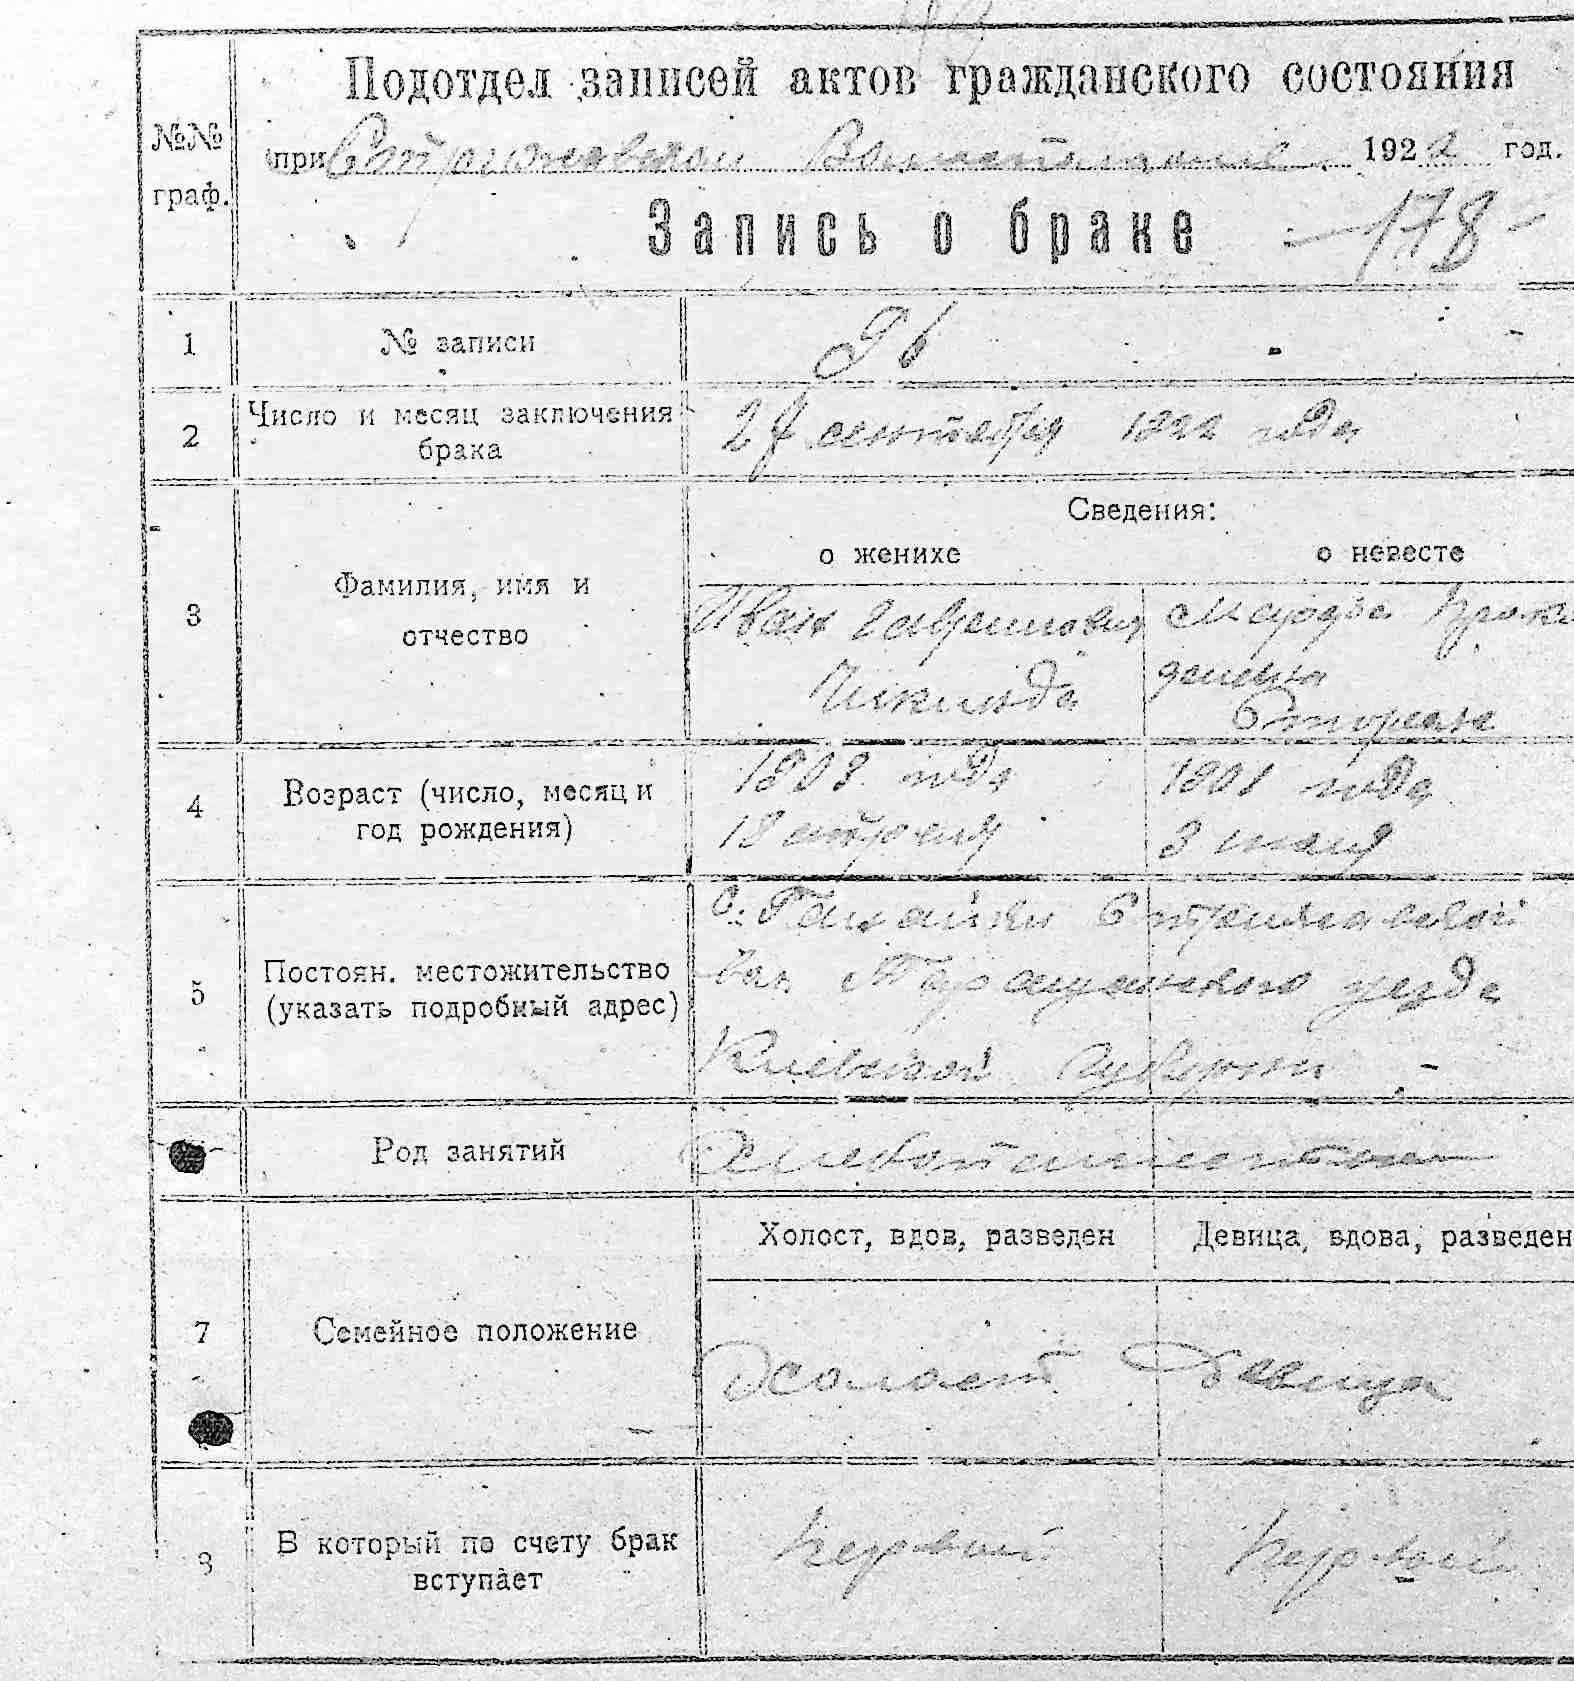 Подотдел записей актов гражданского состояния
№№ граф.
при 1922 год.
Запись о браке -178-
1 № записи 96
2 Число и месяц заключения брака
27 сентября 1922 года
Сведения:
о женихе о невесте
3 Фамилия, имя и отчество
Иван Гаврилович
4 Возраст (число, месяц и год рождения)
1903 года 1901 года
18 апреля 3 мая
5 Постоян. местожительство (указать подробный адрес)
Таращанского уезда
Киевской губернии
Род занятий
Хлебопашество
Холост, вдов, разведен Девица, вдова, разведен
7 Семейное положение
Холост Девица
8 В который по счету брак вступает
Первый Первый